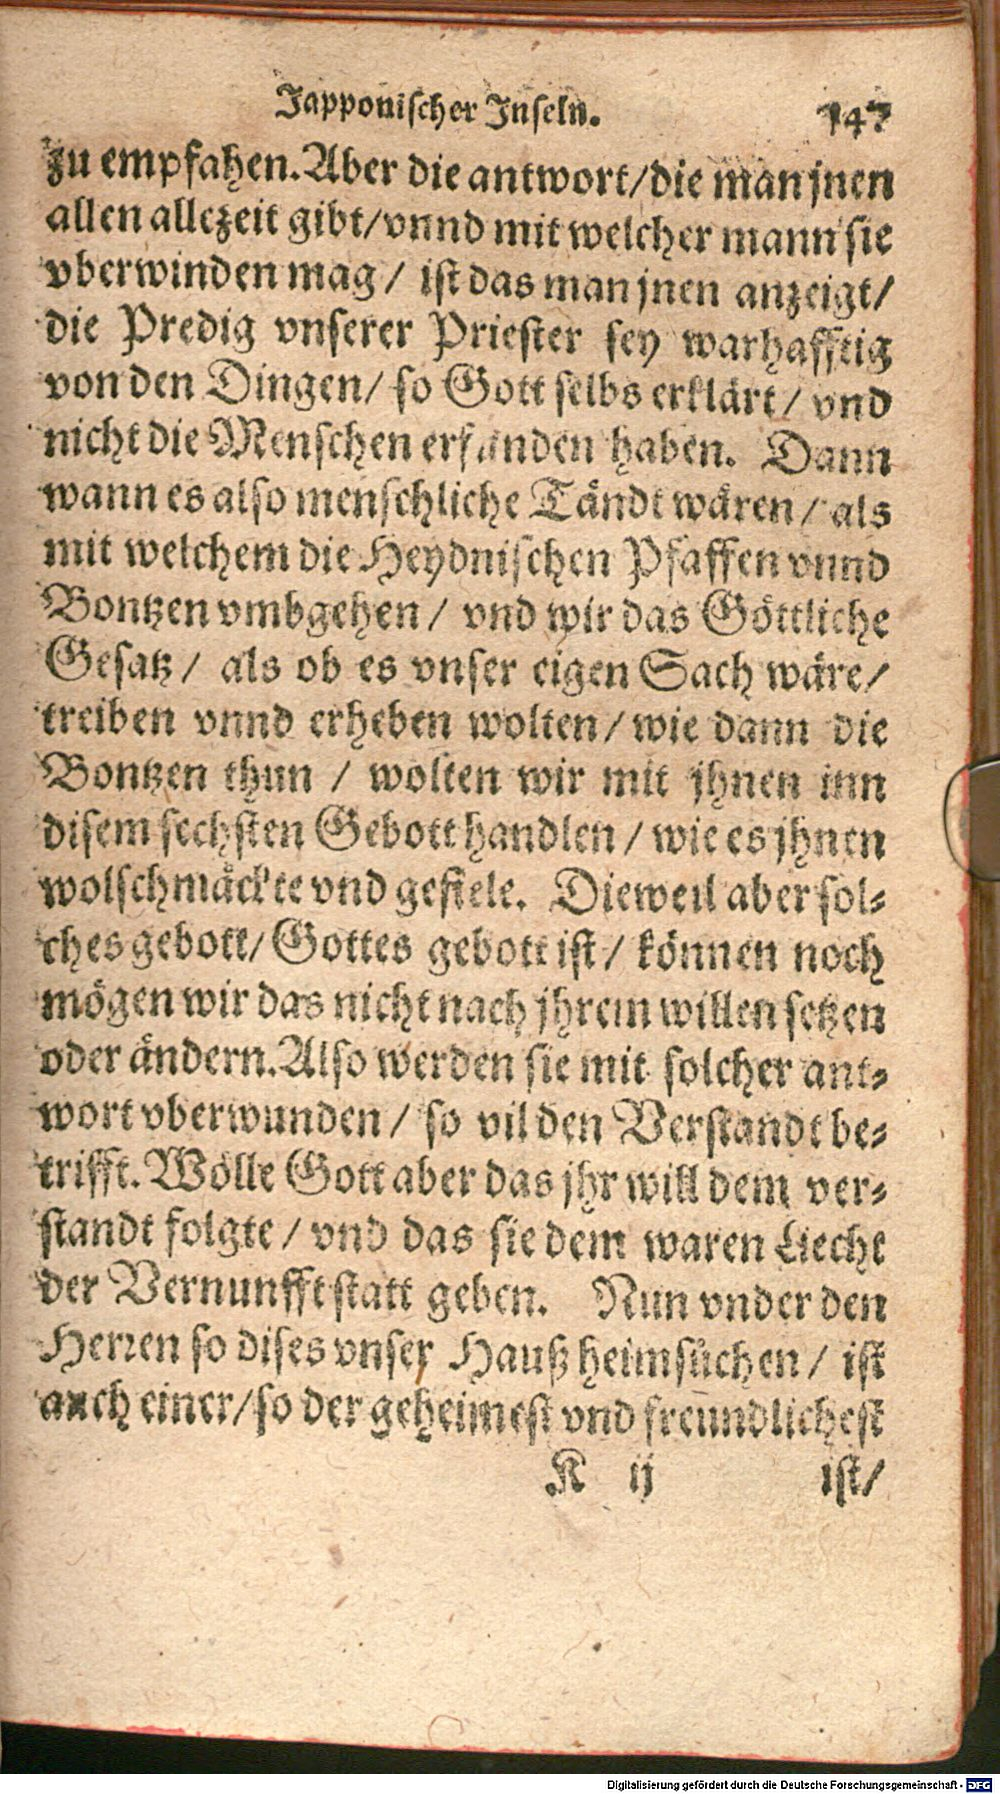 Japponischer Inseln. 147
zu empfahen. Aber die antwort/ die man jnen
allen allezeit gibt/ vnnd mit welcher mann sie
vberwinden mag/ ist das man jnen anzeigt/
die Predig vnserer Priester sey warhafftig
von den Dingen/ so Gott selbs erklärt/ vnd
nicht die Menschen erfunden haben. Dann
wann es also menschliche Tändt wären/ als
mit welchem die Heydnischen Pfaffen vnnd
Bontzen vmbgehen/ vnd wir das Göttliche
Gesatz/ als ob es vnser eigen Sach wäre/
treiben vnnd erheben wolten/ wie dann die
Bontzen thun/ wolten wir mit jhnen inn
disem sechsten Gebott handlen/ wie es jhnen
wolschmäckte vnd gefiele. Dieweil aber sol-
ches gebott/ Gottes gebott ist/ können noch
mögen wir das nicht nach jhrem willen setzen
oder ändern. Also werden sie mit solcher ant-
wort vberwunden/ so vil den Verstandt be-
trifft. Wölle Gott aber das jhr will dem ver-
standt folgte/ vnd das sie dem waren Liecht
der Vernunfft statt geben. Nun vnder den
Herren so dises vnser Hauß heimsuchen/ ist
auch einer/ so der geheimest vnd freundlichest
K ij ist/
Digitalisierung gefördert durch die Deutsche Forschungsgemeinschaft - DFG